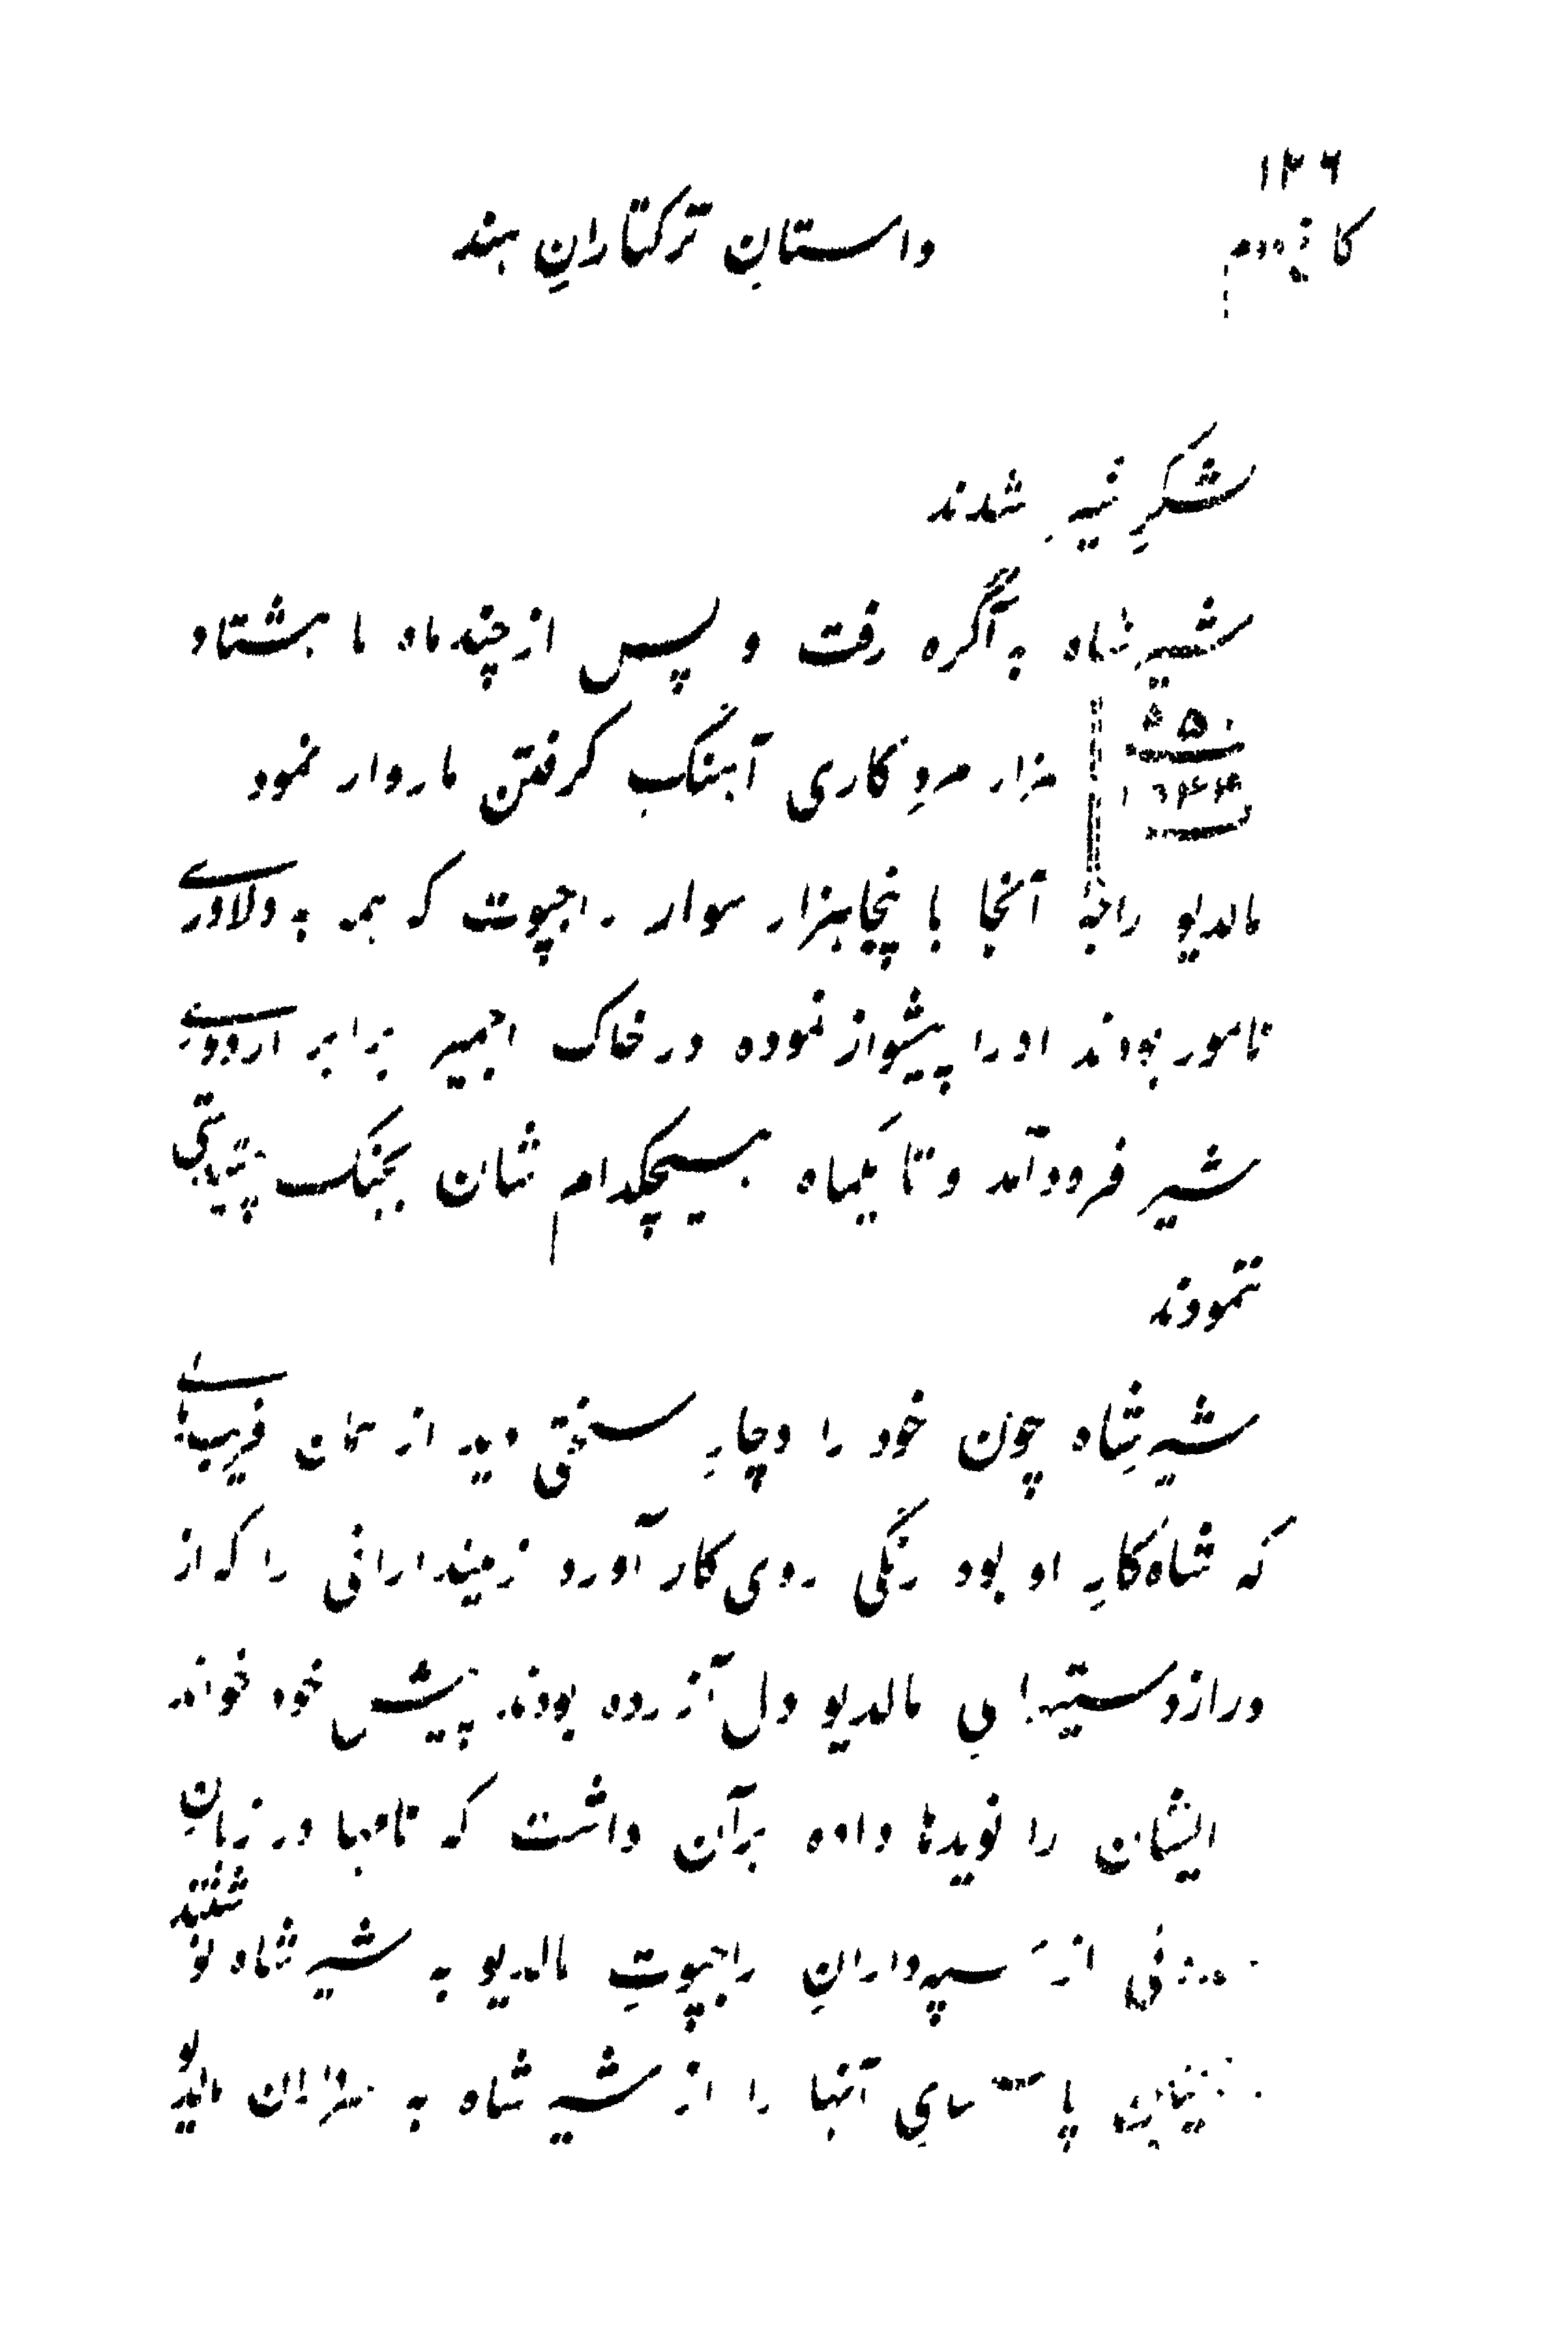 ۱۲۶
کاخ دوم
داستانِ ترکتازانِ هند
لشکرِ شیر شدند
شیرشاه به آگره رفت و پس از چند ماه با هشتاد
۹۵۰
۱۵۴۴
هزار مردِ کاری آهنگِ گرفتن ماروار نمود
مالدیو راجهٔ آنجا با پنجاهزار سوار راجپوت که همه به دلاوری
نامور بودند او را پیشواز نموده در خاک اجمیر برابر اردوی
شیر فرود آمد و تا یکماه هیچکدام شان بجنگ پیشدستی
ننمودند
شیرشاه چون خود را دچارِ سختی دید از همان فریب‌های
که شاه‌کارِ او بود رنگی روی کار آورد زمیندارانی را که از
درازدستیهای مالدیو دل آزرده بودند پیش خود خواند
ایشان را نویدها داده برآن داشت که نامها در زبانِ
از سپه‌دارانِ راجپوتِ مالدیو به شیرشاه نوشتند
پاسخهای آنها را از شیرشاه به سردارانِ مالدیو